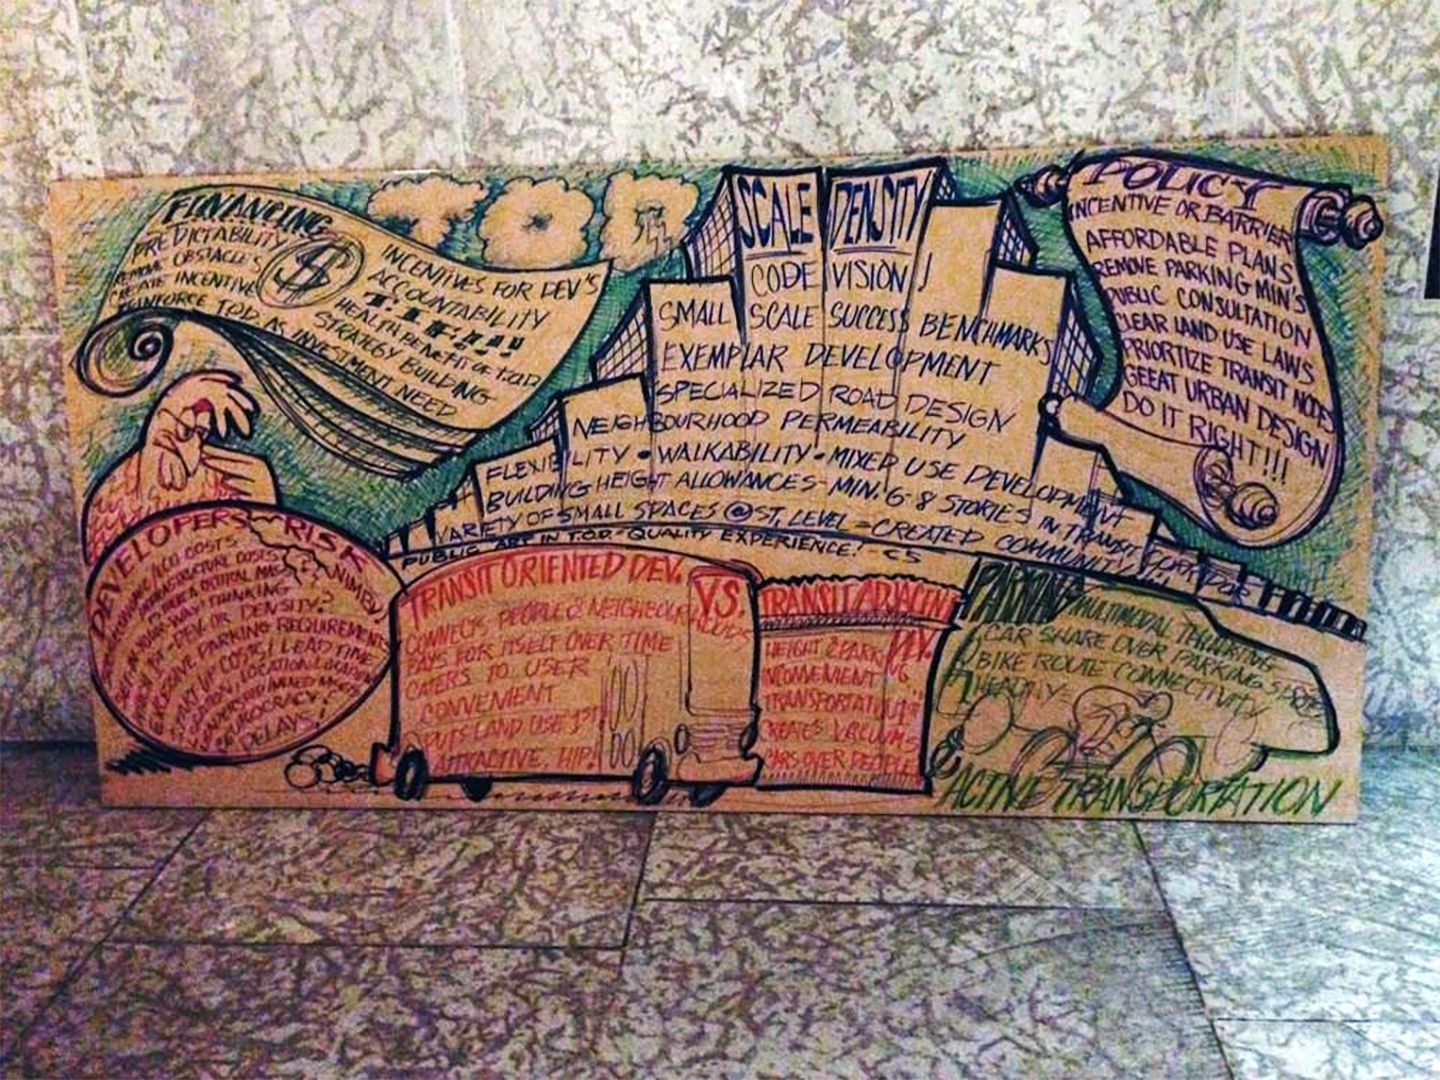 FINANCING
PREDICTABILITY
REMOVE OBSTACLES
CREATE INCENTIVE
REINFORCE TOD AS INVESTMENT NEED
$
INCENTIVES FOR DEV'S
ACCOUNTABILITY
T.I.F.!!!
HEALTH BENEFIT OF T.O.D
STRATEGY BUILDING
TOD
SCALE DENSITY
CODE VISION!
SMALL SCALE SUCCESS BENCHMARKS
EXEMPLAR DEVELOPMENT
SPECIALIZED ROAD DESIGN
NEIGHBOURHOOD PERMEABILITY
FLEXIBILITY • WALKABILITY • MIXED USE DEVELOPMENT
BUILDING HEIGHT ALLOWANCES - MIN. 6-8 STORIES IN TRANSIT
VARIETY OF SMALL SPACES @ ST. LEVEL = CREATED COMMUNITY!!!
PUBLIC ART IN T.O.D. - QUALITY EXPERIENCE!
POLICY
INCENTIVE OR BARRIER
AFFORDABLE PLANS
REMOVE PARKING MIN'S
PUBLIC CONSULTATION
CLEAR LAND USE LAWS
PRIORITIZE TRANSIT NODES
GEEAT URBAN DESIGN
DO IT RIGHT!!!
DEVELOPERS RISK
COSTS
INFRASTRUCTURE COSTS
NIMBY
THINKING
DEV. OR DENSITY?
EXCESSIVE PARKING REQUIREMENTS
START UP COSTS / LEAD TIME
LOCATION, LOCATION
DELAYS!
TRANSIT ORIENTED DEV. V.S.
CONNECTS PEOPLE & NEIGHBOURHOODS
PAYS FOR ITSELF OVER TIME
CATERS TO USER
CONVENIENT
PUTS LAND USE 1ST
ATTRACTIVE, HIP!
TRANSIT ADJACENT
DEV.
HEIGHT & PARKING
INCONVENIENT
TRANSPORTATION 1ST
CREATES VACUUMS
CARS OVER PEOPLE
PARKING
MULTIMODAL
CAR SHARE OVER PARKING
BIKE ROUTE CONNECTIVITY
HEALTHY
ACTIVE TRANSPORTATION